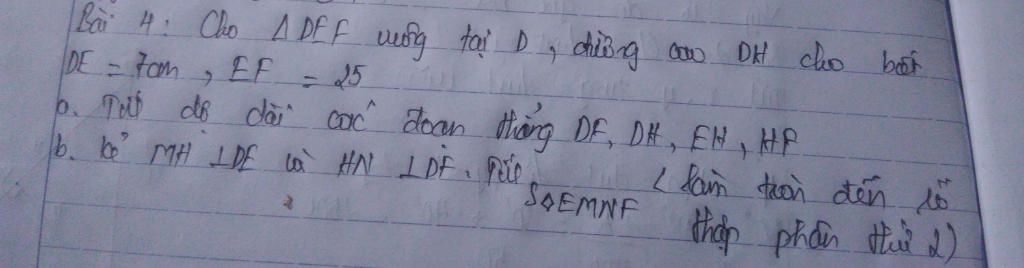 Bài 4: Cho Δ DEF vuông tại D, đường cao DH cho biết
DE = 7cm, EF = 25
a. Tính độ dài các đoạn thẳng DF, DH, EH, HF
b. kẻ MH ⊥DE và HN ⊥DF. Tính S◊EMNF (làm tròn đến số
thập phân thứ 2)